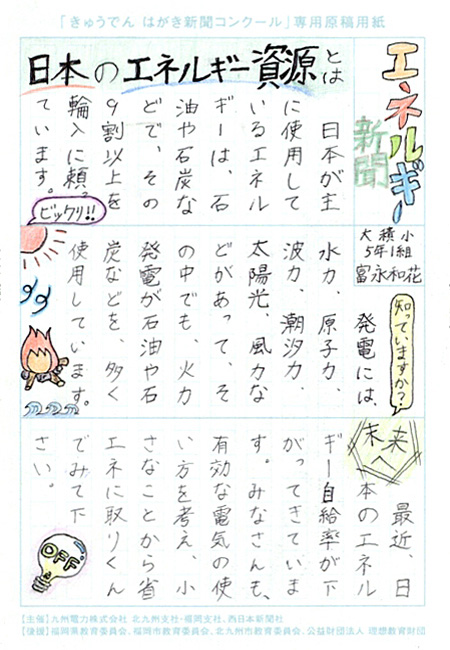 「きゅうでん はがき新聞コンクール」専用原稿用紙
エネルギー
新聞
大積小
5年1組
富永和花
日本のエネルギー資源とは
日本が主
に使用して
いるエネル
ギーは、石
油や石炭な
どで、その
9割以上を
輸入に頼っ
ています。
ビックリ!!
知っていますか?
発電には、
水力、原子力、
波力、潮汐力、
太陽光、風力な
どがあって、そ
の中でも、火力
発電が石油や石
炭などを、多く
使用しています。
未来へ
最近、日
本のエネル
ギー自給率が下
がってきていま
す。みなさんも、
有効な電気の使
い方を考え、小
さなことから省
エネに取りくん
でみて下
さい。
OFF
【主催】九州電力株式会社 北九州支社・福岡支社、西日本新聞社
【後援】福岡県教育委員会、福岡市教育委員会、北九州市教育委員会、公益財団法人 理想教育財団